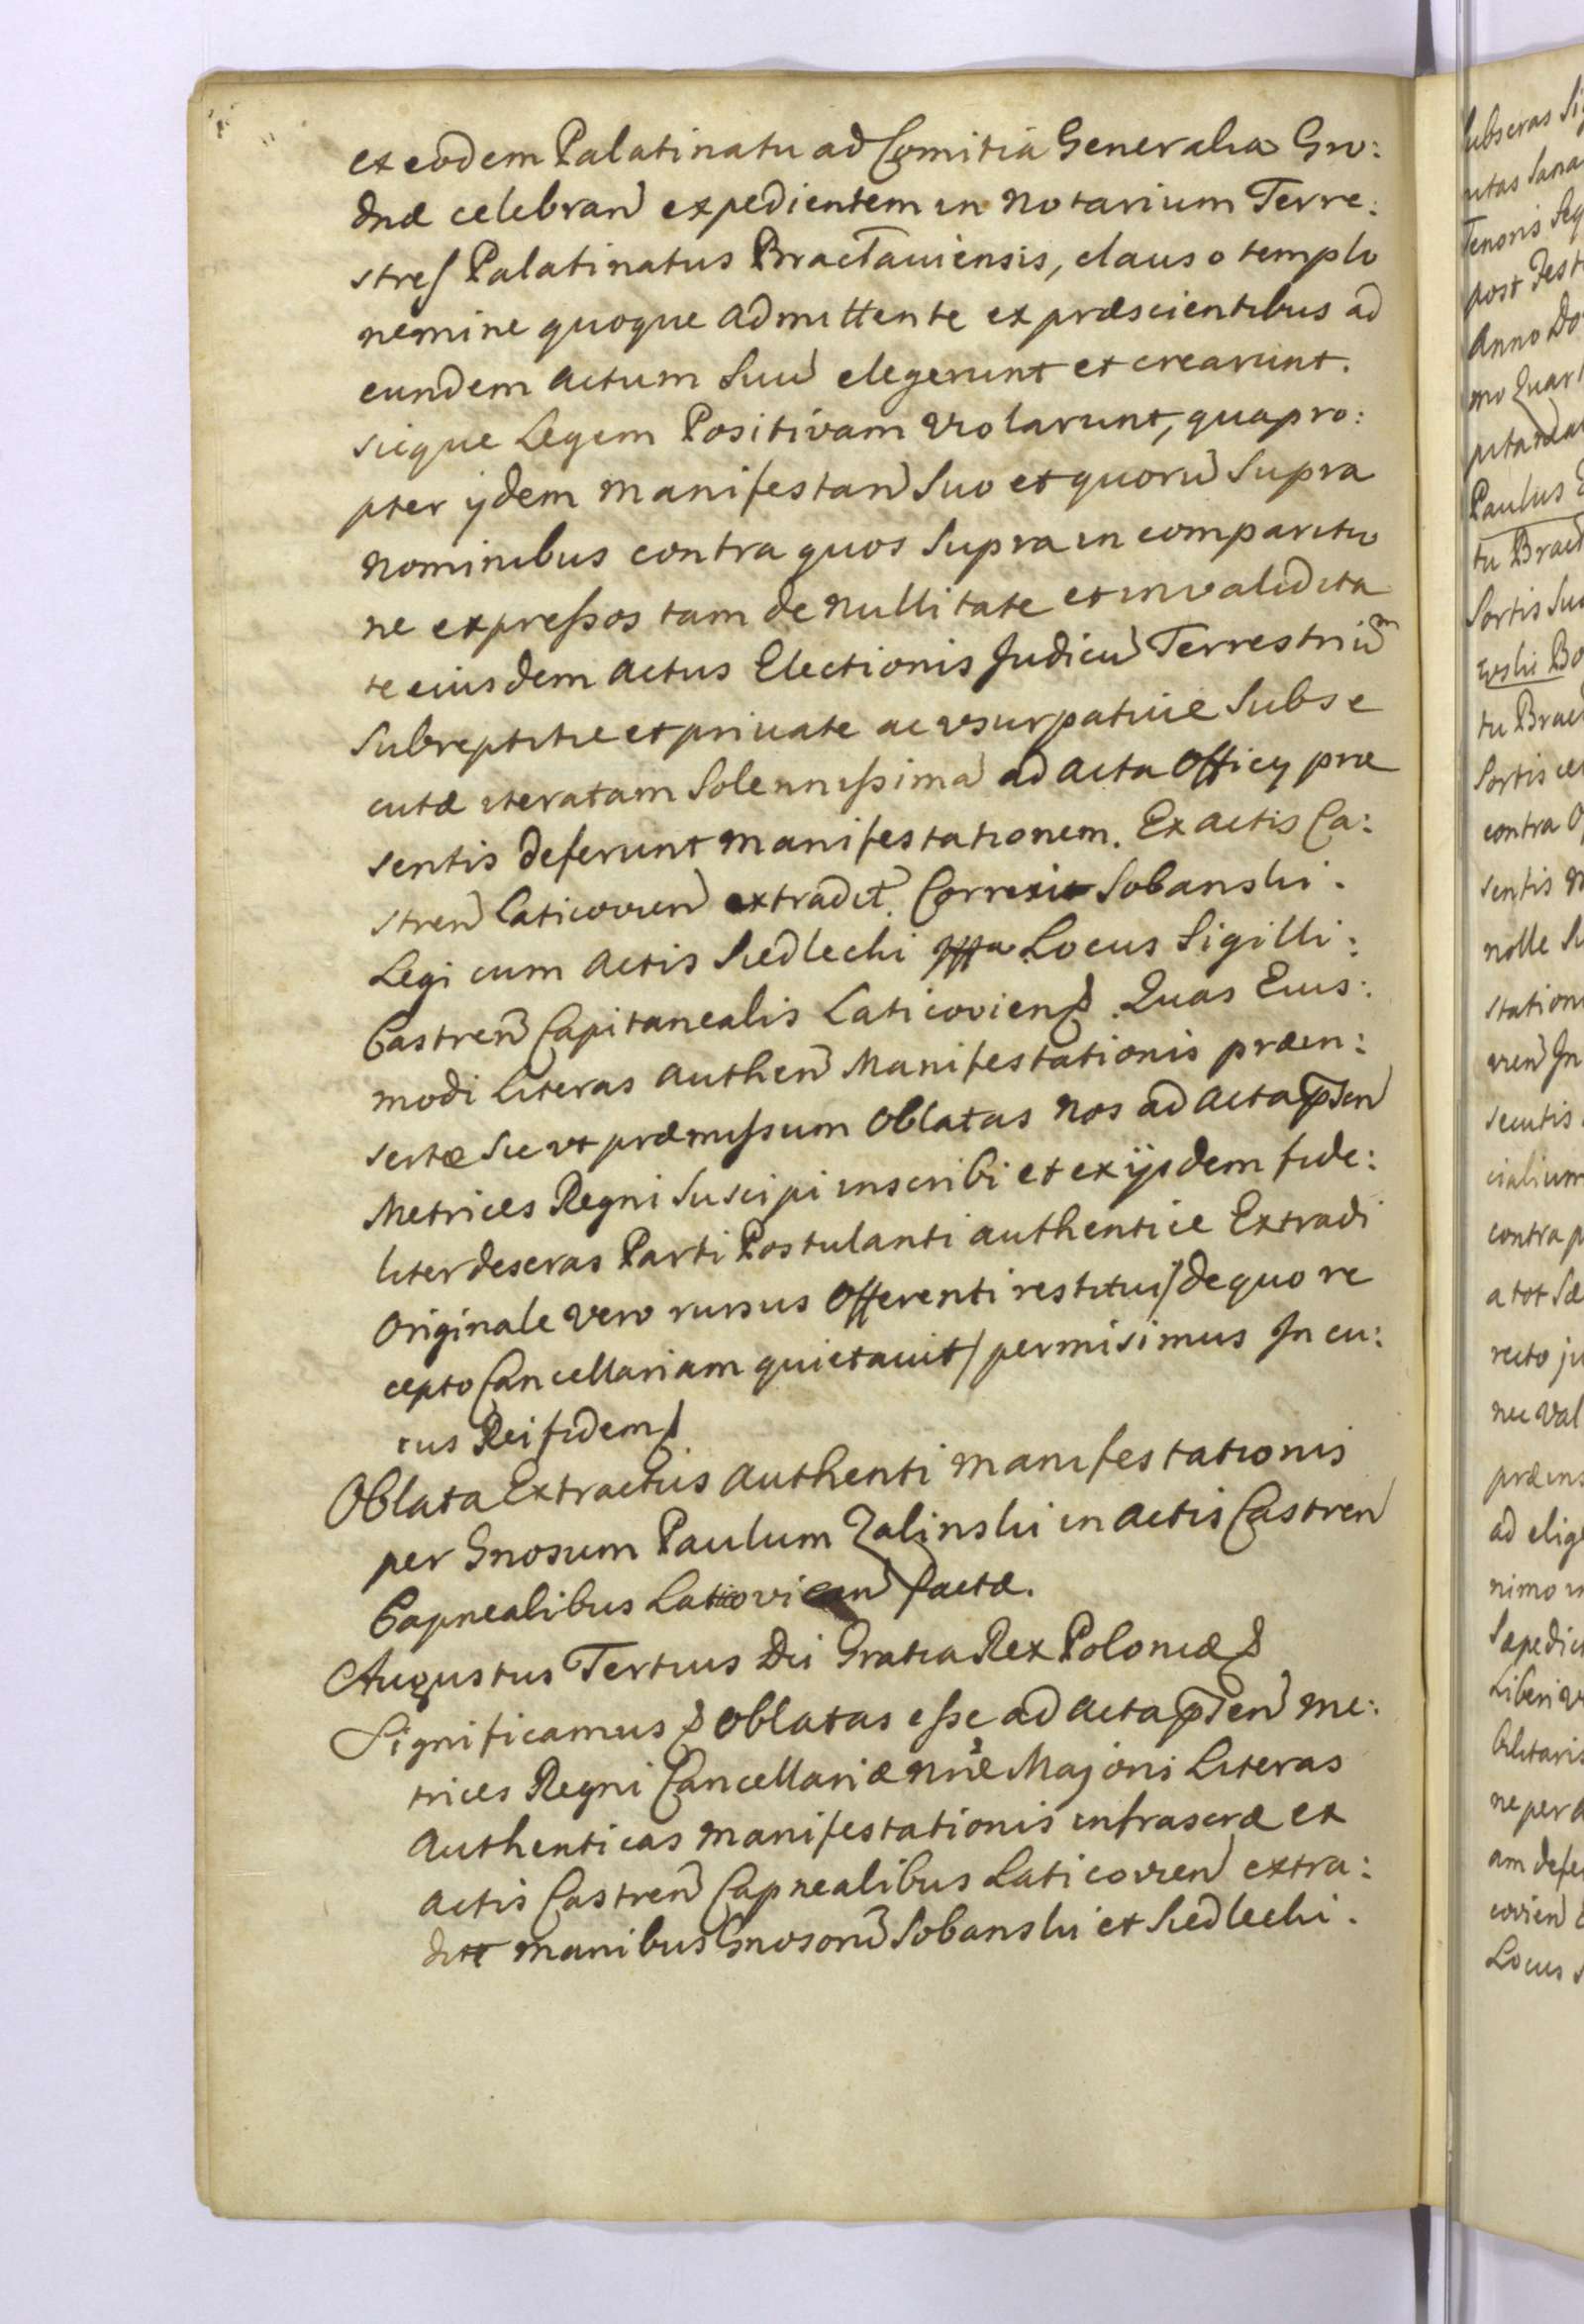 ex eodem Palatinatu ad Comitia Generalia Gro:
dnæ celebran expedientem in Notarium Terre:
stres Palatinatus Bractaviensis, clauso templo
nemine quoque admittente ex præscientibus ad
eundem actum suu elegerunt et crearunt.
sicque Legem Positivam violarunt, quapro:
pter ijdem manifestan suo et quoru supra
nominibus contra quos supra in comparitio
ne expressos tam de nullitate et invalidita
te eiusdem actus Electionis Judicu Terrestriu
subreptitie et private ac usurpative subse
cutæ iteratam solennissima ad acta Officij præ
sentis deferunt manifestationem. Ex actis Ca:
stren Laticovien extradit. Correxit Sobanski.
Legi cum actis Siedlecki Locus Sigilli:
Castren Capitanealis Laticoviens. Quas Eius:
modi Literas authen Manifestationis præin:
sertæ sic ut præmissum oblatas nos ad acta pnsen
Metrices Regni suscipi inscribi et ex ijsdem fide:
liter descras Parti Postulanti authentice Extradi
Originale vero rursus Offerenti restitui / de quo re
cepto Cancellariam quietavit / permisimus In cu:
ius Rei fidem
Oblata Extractus authenti manifestationis
per Gnosum Paulum Zalinski in actis Castren
Capnealibus Laticovien factæ.
Augustus Tertius Dei Gratia Rex Poloniæ
Significamus oblatas esse ad acta pnsen me:
trices Regni Cancellariæ nræ Majoris Literas
authenticas manifestationis infrascræ ex
actis Castren Capnealibus Laticovien extra:
dit manibus Gnosoru Sobanski et Siedlecki.